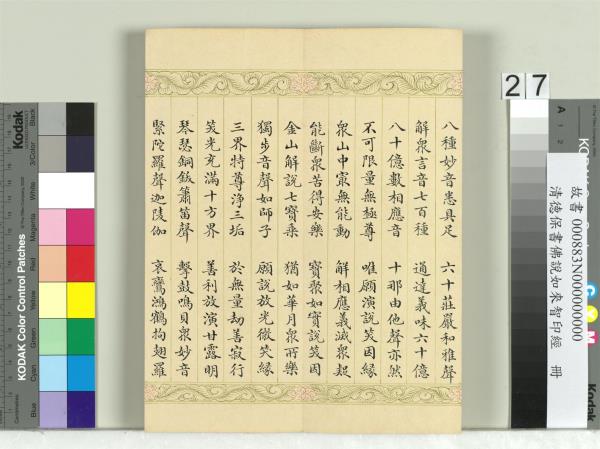 八種妙音悉具足 六十莊嚴和雅聲
解衆言音七百種 通達義味六十億
八十億數相應音 十那由他聲亦然
不可限量無極尊 唯願演說笑因緣
衆山中寂無能動 解相應義滅衆疑
能斷衆苦得安樂 寶聚如實說笑因
金山解說七寶乘 猶如華月衆所樂
獨步音聲如師子 願說放光微笑緣
三界特尊淨三垢 於無量劫善寂行
笑光充滿十方界 善利放演甘露明
琴瑟銅鈸簫笛聲 擊鼓鳴貝衆妙音
緊陀羅聲迦陵伽 哀鸞鴻鶴拘翅羅
27
故書 000883N000000000
清德保書佛說如來智印經 冊
Kodak
KODAK Color Control Patches
Blue
Cyan
Green
Yellow
Red
Magenta
White
3/Color
Black
A 1 2
C Y M